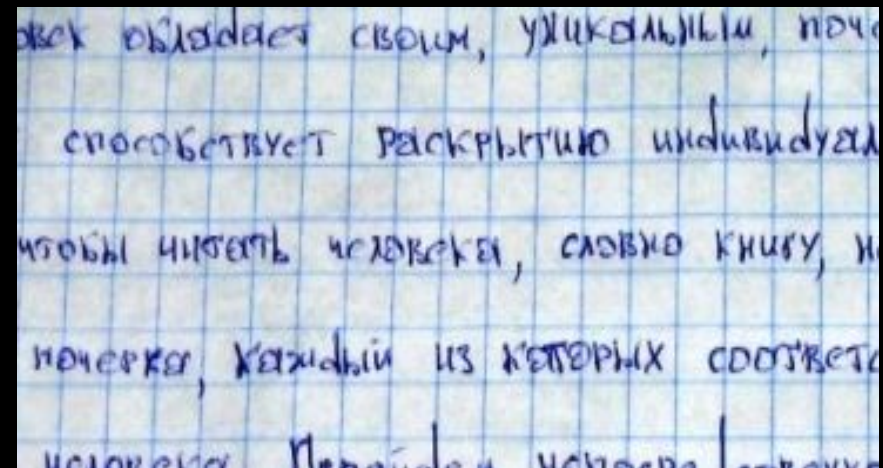 овек обладает своим, уникальным, поче
способствует раскрытию индивидуал
чтобы читать человека, словно книгу, н
почерка, каждый из которых соответс
человека.